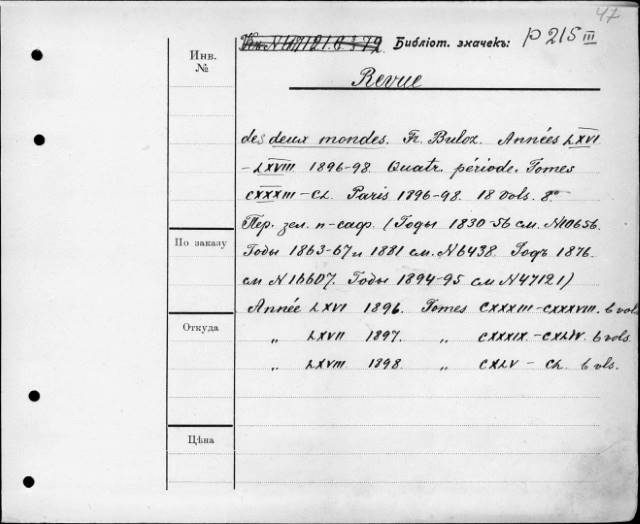 47
Библіот. значекъ: p 215 III
Инв.
№
Revue
des deux mondes. Fr. Buloz. Années LXVI
– LXVIII 1896-98. Quatr. période. Tomes
CXXXIII – CL. Paris 1896-98. 18 vols. 8°
Пер. зел. п-саф. (Годы 1830-56 см. №10656.
По заказу
Годы 1863-67 и 1881 см. №6438. Годъ 1876
см № 16607. Годы 1894-95 см №47121)
Année LXVI 1896. Tomes CXXXIII – CXXXVIII. 6 vols
Откуда
„ LXVII 1897. „ CXXXIX. – CXLIV. 6 vols.
„ LXVIII 1898. „ CXLV – CL. 6 vls.
Цѣна